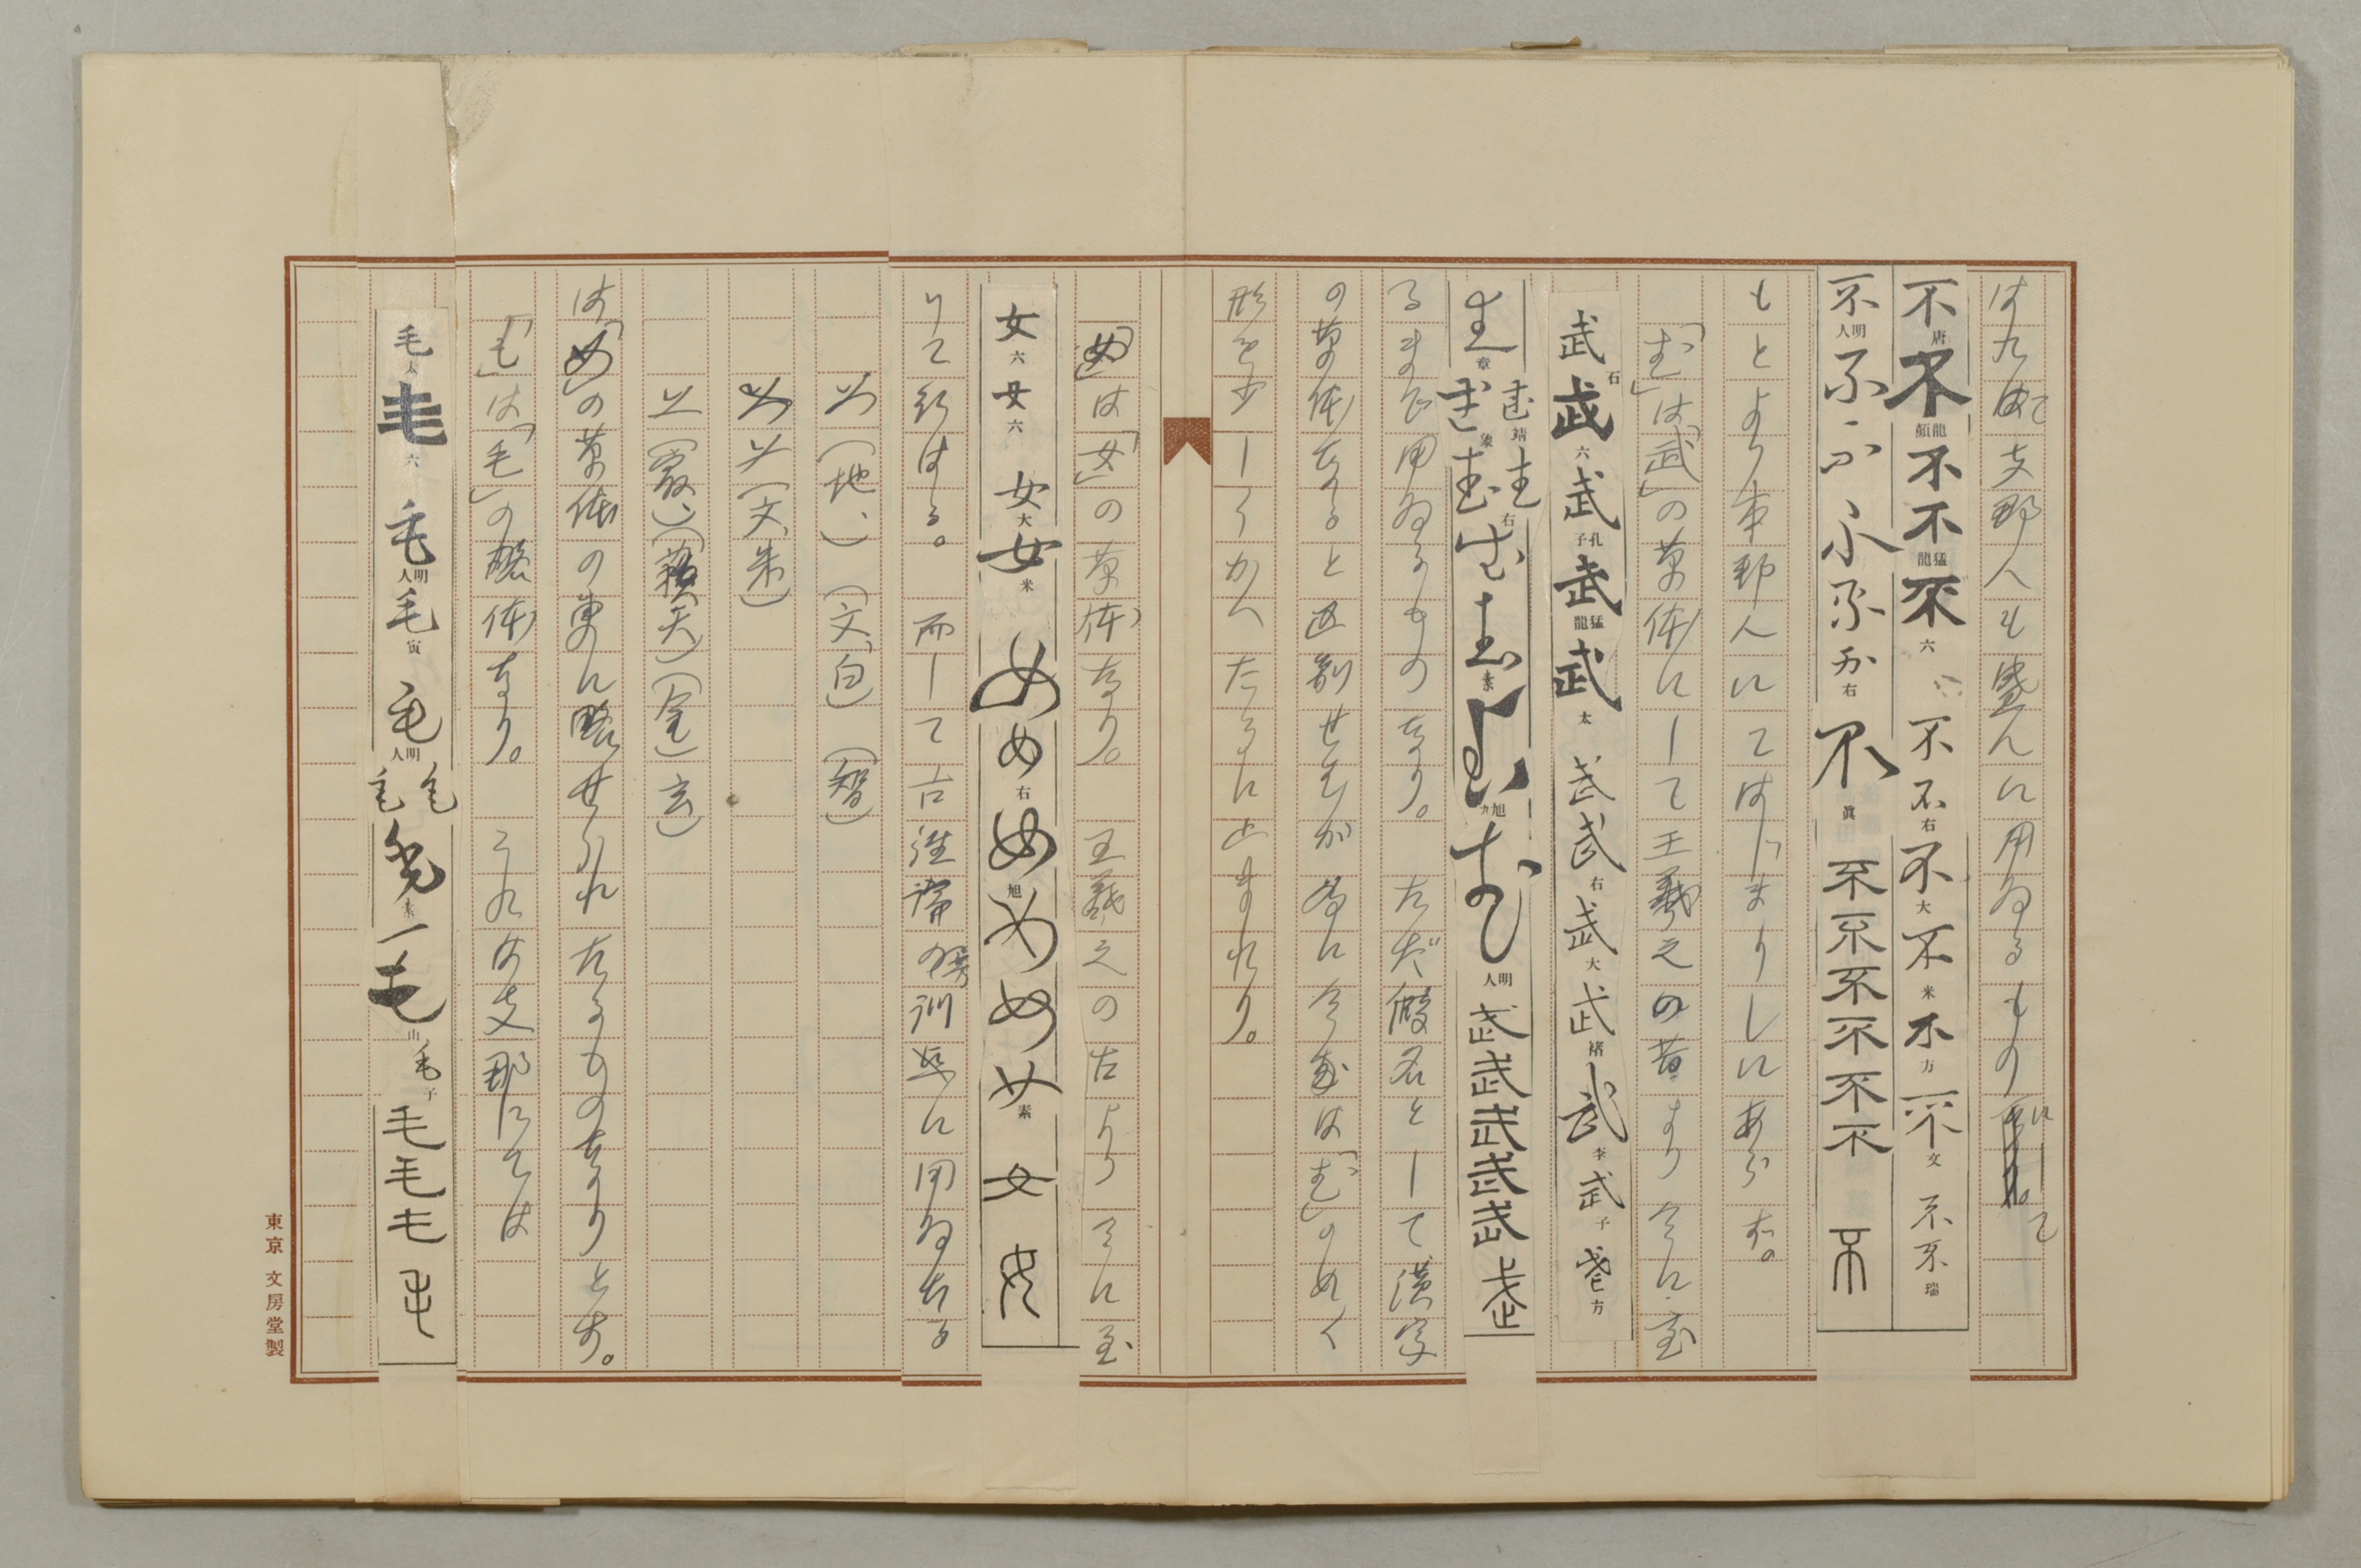 は九成で支那人も盛んに用ゐるものにして
不唐不顔龍不不龍猛不六不不右不大不米不方不文不不瑞
不人明不不不不不右不眞不不不不不不不
もとより本邦人にてはじまりしにあらず。
「む」は「武」の草体にして王羲之の昔より今に至
武石武六武子孔武龍猛武太武武右武大武褚武李武子武方
武章武靖武象武武右武武素武旭武人明武武武武武武
るまで用ゐるものなり。たゞ假名として漢字
の草体なると区別せむが為に今更は「む」のめく
形を少しくかへたるに止まれり。
「め」は「女」の草体なり。王羲之の古より今に至
女六女六女大女米女女右女旭女女女素女女
りて行はる。而して古往諸家訓点に用ゐたる
(地、)(文、白)(智)
(文、朱)
(寂、)(蘓、天)(金)(玄)
は「め」の草体の更に略せられたるものなりとす。
「も」は「毛」の略体なり。これは支那にては
毛大毛六毛人明毛寅毛人明毛毛毛素毛山毛子毛毛毛毛
東京 文房堂製